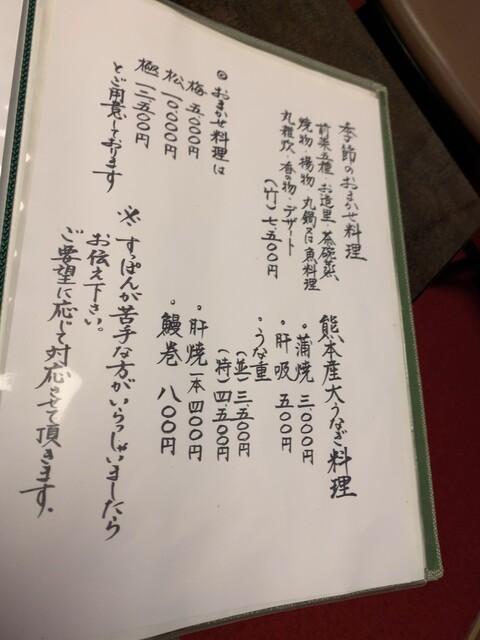 季節のおまかせ料理
前菜五種・お造里・茶碗蒸
焼物・揚物・丸鍋又は魚料理
丸雑炊・香の物・デザート
(竹) 七、五〇〇円
◎ おまかせ料理は
梅 五、〇〇〇円
松 一〇、〇〇〇円
極 一三、五〇〇円
とご用意しております
熊本産大うなぎ料理
• 蒲焼 三、〇〇〇円
• 肝吸 五〇〇円
• うな重
(並) 三、五〇〇円
(特) 四、五〇〇円
• 肝焼 一本 四〇〇円
• 鰻巻 八〇〇円
※ すっぽんが苦手な方がいらっしゃいましたら
お伝え下さい。
ご要望に応じて対応させて頂きます。